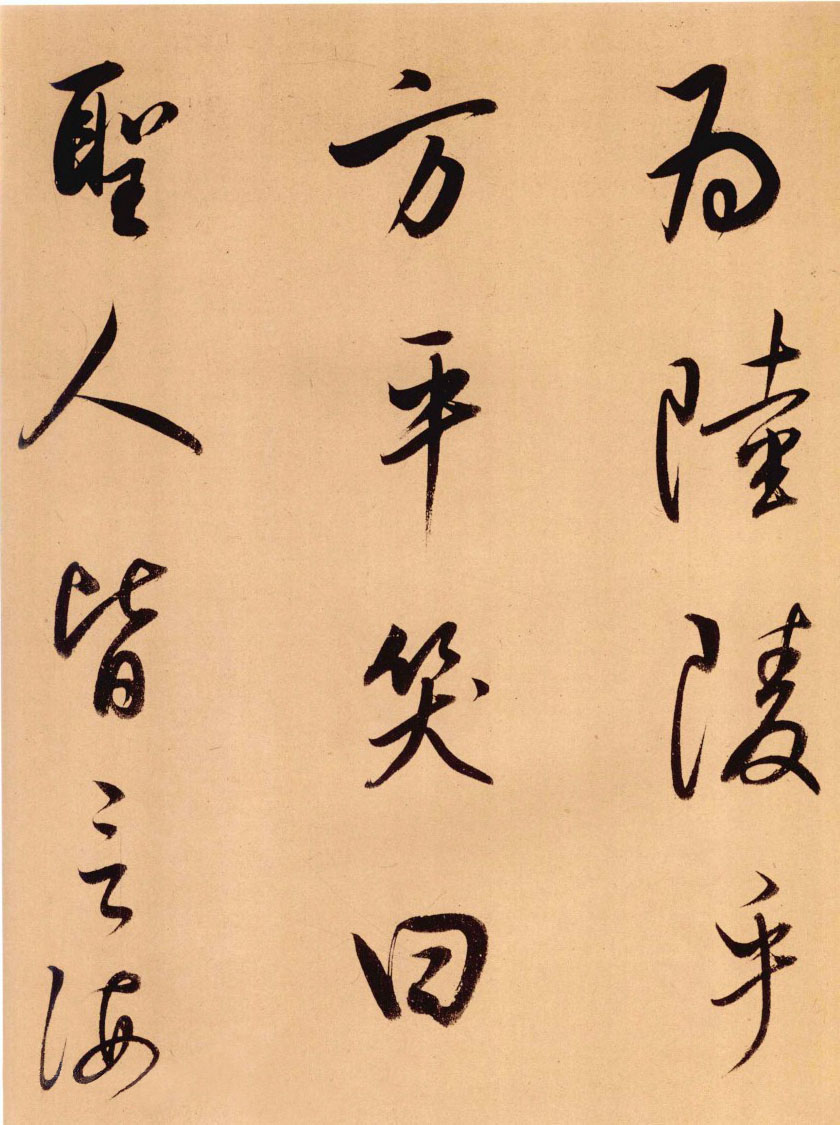 為陸陵乎
方平笑曰
聖人皆言海